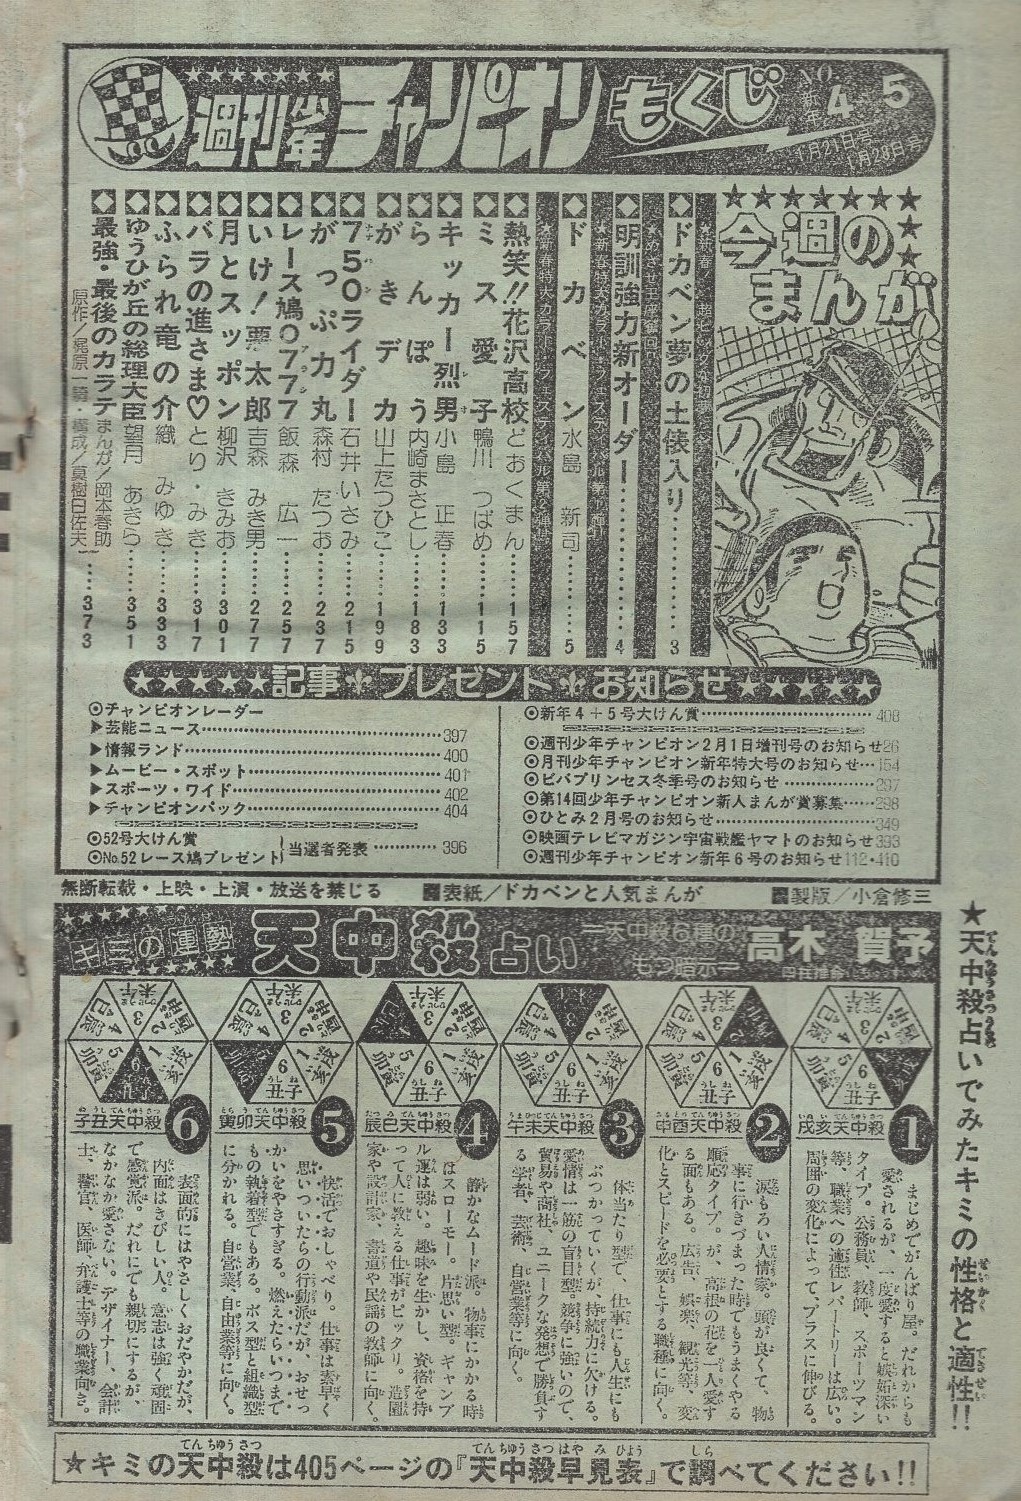 週刊少年チャンピオン もくじ
NO.4 5
新年
1月21日号
1月28日号
今週のまんが
ドカベン夢の土俵入り……3
明訓強力新オーダー……4
ドカベン 水島新司……5
熱笑!!花沢高校 どおくまん……157
ミス愛子 鴨川つばめ……115
キッカー烈男 小島正春……133
らんぽう 内崎まさとし……183
がきデカ 山上たつひこ……199
750ライダー 石井いさみ……215
がっぷ力丸 森村たつお……237
レース鳩0777 飯森広一……257
いけ!栗太郎 吉森みき男……277
月とスッポン 柳沢きみお……301
バラの進さま♡ とり・みき……317
ふられ竜の介 織みゆき……333
ゆうひが丘の総理大臣 望月あきら……351
最強・最後のカラテ まんが/岡本春助
原作/梶原一騎・構成/真樹日佐夫……373
記事 プレゼント お知らせ
◎チャンピオンレーダー
▶芸能ニュース……397
▶情報ランド……400
▶ムービー・スポット……401
▶スポーツ・ワイド……402
▶チャンピオンパック……404
◎52号大けん賞
◎No.52レース鳩プレゼント
当選者発表……396
◎新年4+5号大けん賞……408
◎週刊少年チャンピオン2月1日増刊号のお知らせ26
◎月刊少年チャンピオン新年特大号のお知らせ…154
◎ビバプリンセス冬季号のお知らせ……297
◎第14回少年チャンピオン新人まんが賞募集……298
◎ひとみ2月号のお知らせ……349
◎映画テレビマガジン宇宙戦艦ヤマトのお知らせ393
◎週刊少年チャンピオン新年6号のお知らせ112・410
無断転載・上映・上演・放送を禁じる
表紙/ドカベンと人気まんが
製版/小倉修三
キミの運勢 天中殺占い
―天中殺6種のもつ暗示―
高木 賀予
★天中殺占いでみたキミの性格と適性!!
1
戌亥天中殺
まじめでがんばり屋。だれからも
愛されるが、一度愛すると嫉妬深い
タイプ。公務員、教師、スポーツマン
等、職業への適性レパートリーは広い。
周囲の変化によって、プラスに伸びる。
2
申酉天中殺
涙もろい人情家。頭が良くて、物
事に行きづまった時でもうまくやる
順応タイプ。が、高根の花を一人愛す
る面もある。広告、娯楽、観光等、変
化とスピードを必要とする職種に向く。
3
午未天中殺
体当たり型で、仕事にも人生にも
ぶつかっていくが、持続力に欠ける。
愛情は一筋の盲目型。競争に強いので、
貿易や商社、ユニークな発想で勝負す
る学者、芸術、自営業等に向く。
4
辰巳天中殺
静かなムード派。物事にかかる時
はスローモー。片思い型。ギャンブ
ル運は弱い。趣味を生かし、資格を持
って人に教える仕事がピッタリ。造園
家や設計家、書道や民謡の教師に向く。
5
寅卯天中殺
快活でおしゃべり。仕事は素早く
思いついたらの行動派だが、おせっ
かいをやきすぎる。燃えたらいつまで
もの執着型でもある。ボス型と組織型
に分かれる。自営業、自由業等に向く。
6
子丑天中殺
表面的にはやさしくおだやかだが、
内面はきびしい人。意志は強く頑固
で感覚派。だれにでも親切にするが、
なかなか愛さない。デザイナー、会計
士、警官、医師、弁護士等の職業向き。
★キミの天中殺は405ページの『天中殺早見表』で調べてください!!